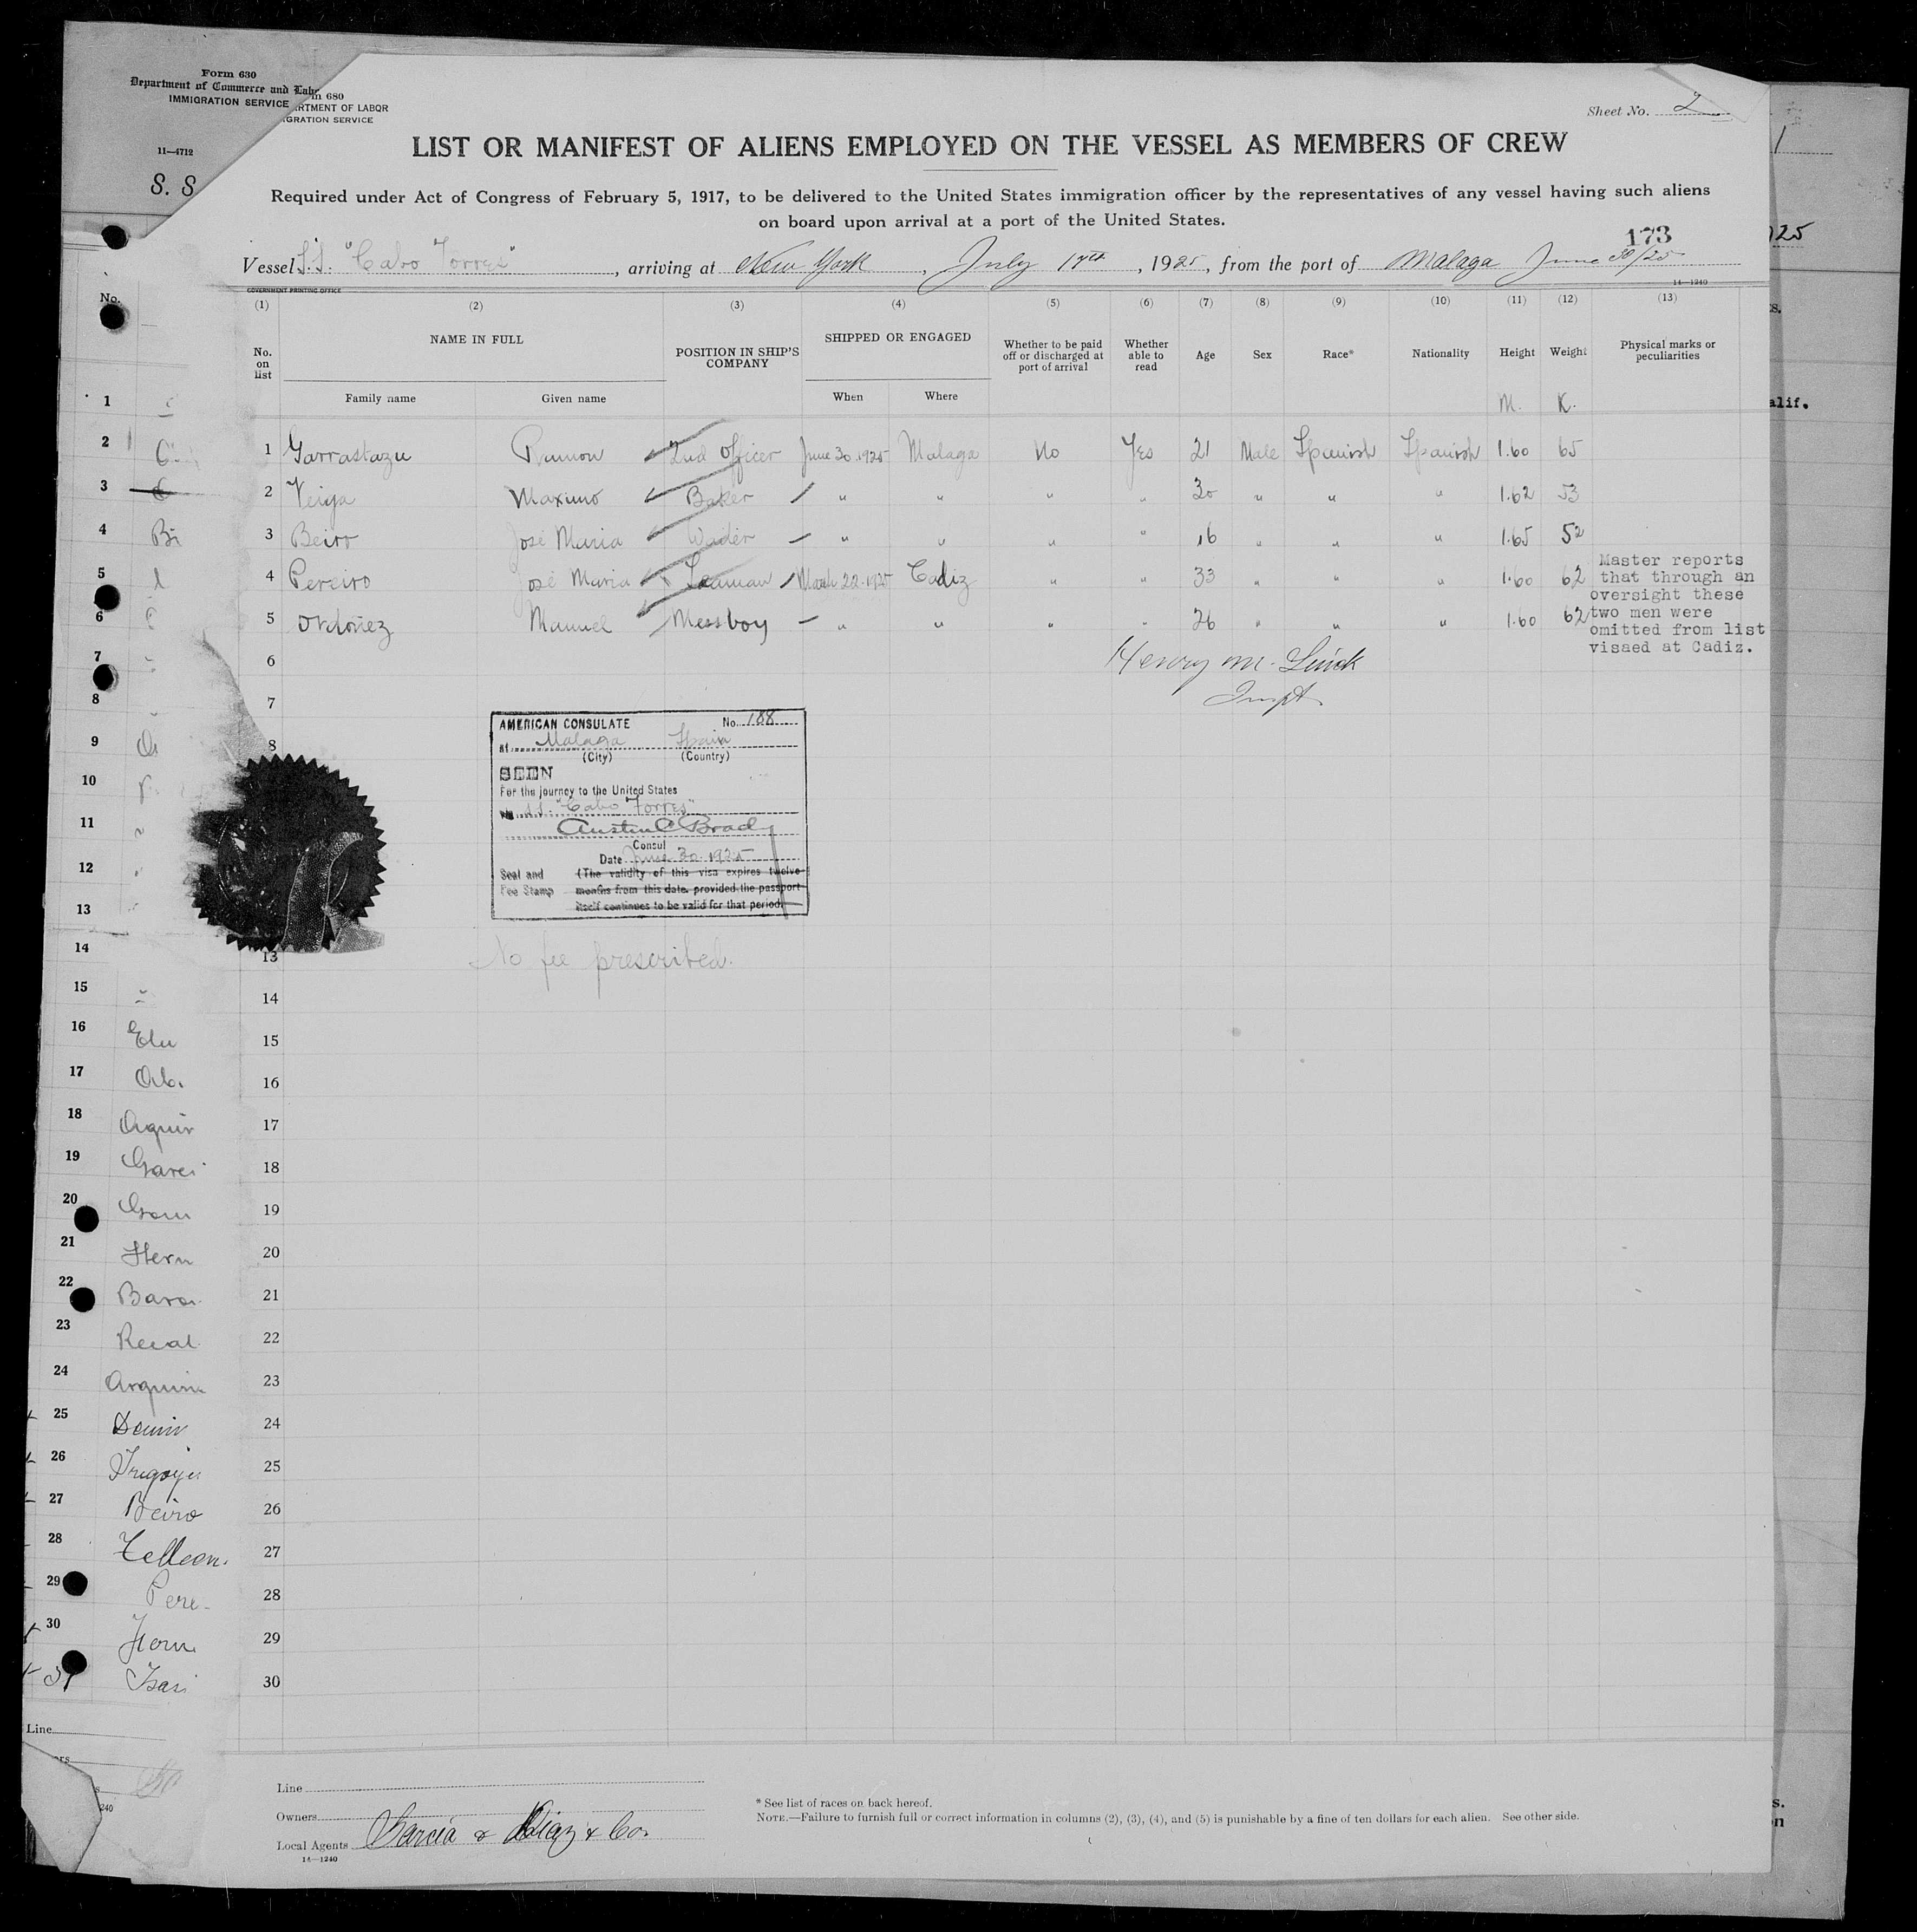 Form 630
Department of Commerce and Labo
IMMIGRATION SERVICE
11—4712
S. S
m 680
RTMENT OF LABOR
IGRATION SERVICE
Sheet No. 2
LIST OR MANIFEST OF ALIENS EMPLOYED ON THE VESSEL AS MEMBERS OF CREW
Required under Act of Congress of February 5, 1917, to be delivered to the United States immigration officer by the representatives of any vessel having such aliens
on board upon arrival at a port of the United States.
173
Vessel S.S. "Cabo Torres", arriving at New York, July 18th, 1925, from the port of Malaga June 30/25
GOVERNMENT PRINTING OFFICE
14—1240
(1) (2) (3) (4) (5) (6) (7) (8) (9) (10) (11) (12) (13)
No. on list NAME IN FULL POSITION IN SHIP'S COMPANY SHIPPED OR ENGAGED Whether to be paid off or discharged at port of arrival Whether able to read Age Sex Race* Nationality Height Weight Physical marks or peculiarities
Family name Given name When Where M. K.
1 Garrastazu Ramon 2nd Officer June 30 1925 Malaga No Yes 21 Male Spanish Spanish 1.60 65
2 Veiga Maximo Baker " " " " 30 " " " 1.62 53
3 Beiro José Maria " " " " 16 " " " 1.65 52
4 Pereiro José Maria Seaman March 22. 1925 Cadiz " " 33 " " " 1.60 62
5 Ordoñez Manuel Messboy " " " " 26 " " " 1.60 62
Master reports
that through an
oversight these
two men were
omitted from list
visaed at Cadiz.
6
Henry M.
Inspt.
7
8
AMERICAN CONSULATE No. 188
At Malaga Spain
(City) (Country)
SEEN
For the journey to the United States
S.S. "Cabo Torres"
Austin C Brady
Consul
Date June 30. 1925
Seal and (The validity of this visa expires twelve
Fee Stamp months from this date, provided the passport
itself continues to be valid for that period.
13
No fee prescribed.
14
15
16
17
18
19
20
21
22
23
24
25
26
27
28
29
30
Line
Owners
Local Agents Garcia & Diaz & Co.
14—1240
* See list of races on back hereof.
NOTE.—Failure to furnish full or correct information in columns (2), (3), (4), and (5) is punishable by a fine of ten dollars for each alien. See other side.
No.
1
2
3
4
5
6
7
8
9
10
11
12
13
14
15
16
17
18 Aguir
19 Garci
20
21 Hern
22
23
24
25
26
27 Beiro
28
29 Pere
30
31
Line
240
25
alif.